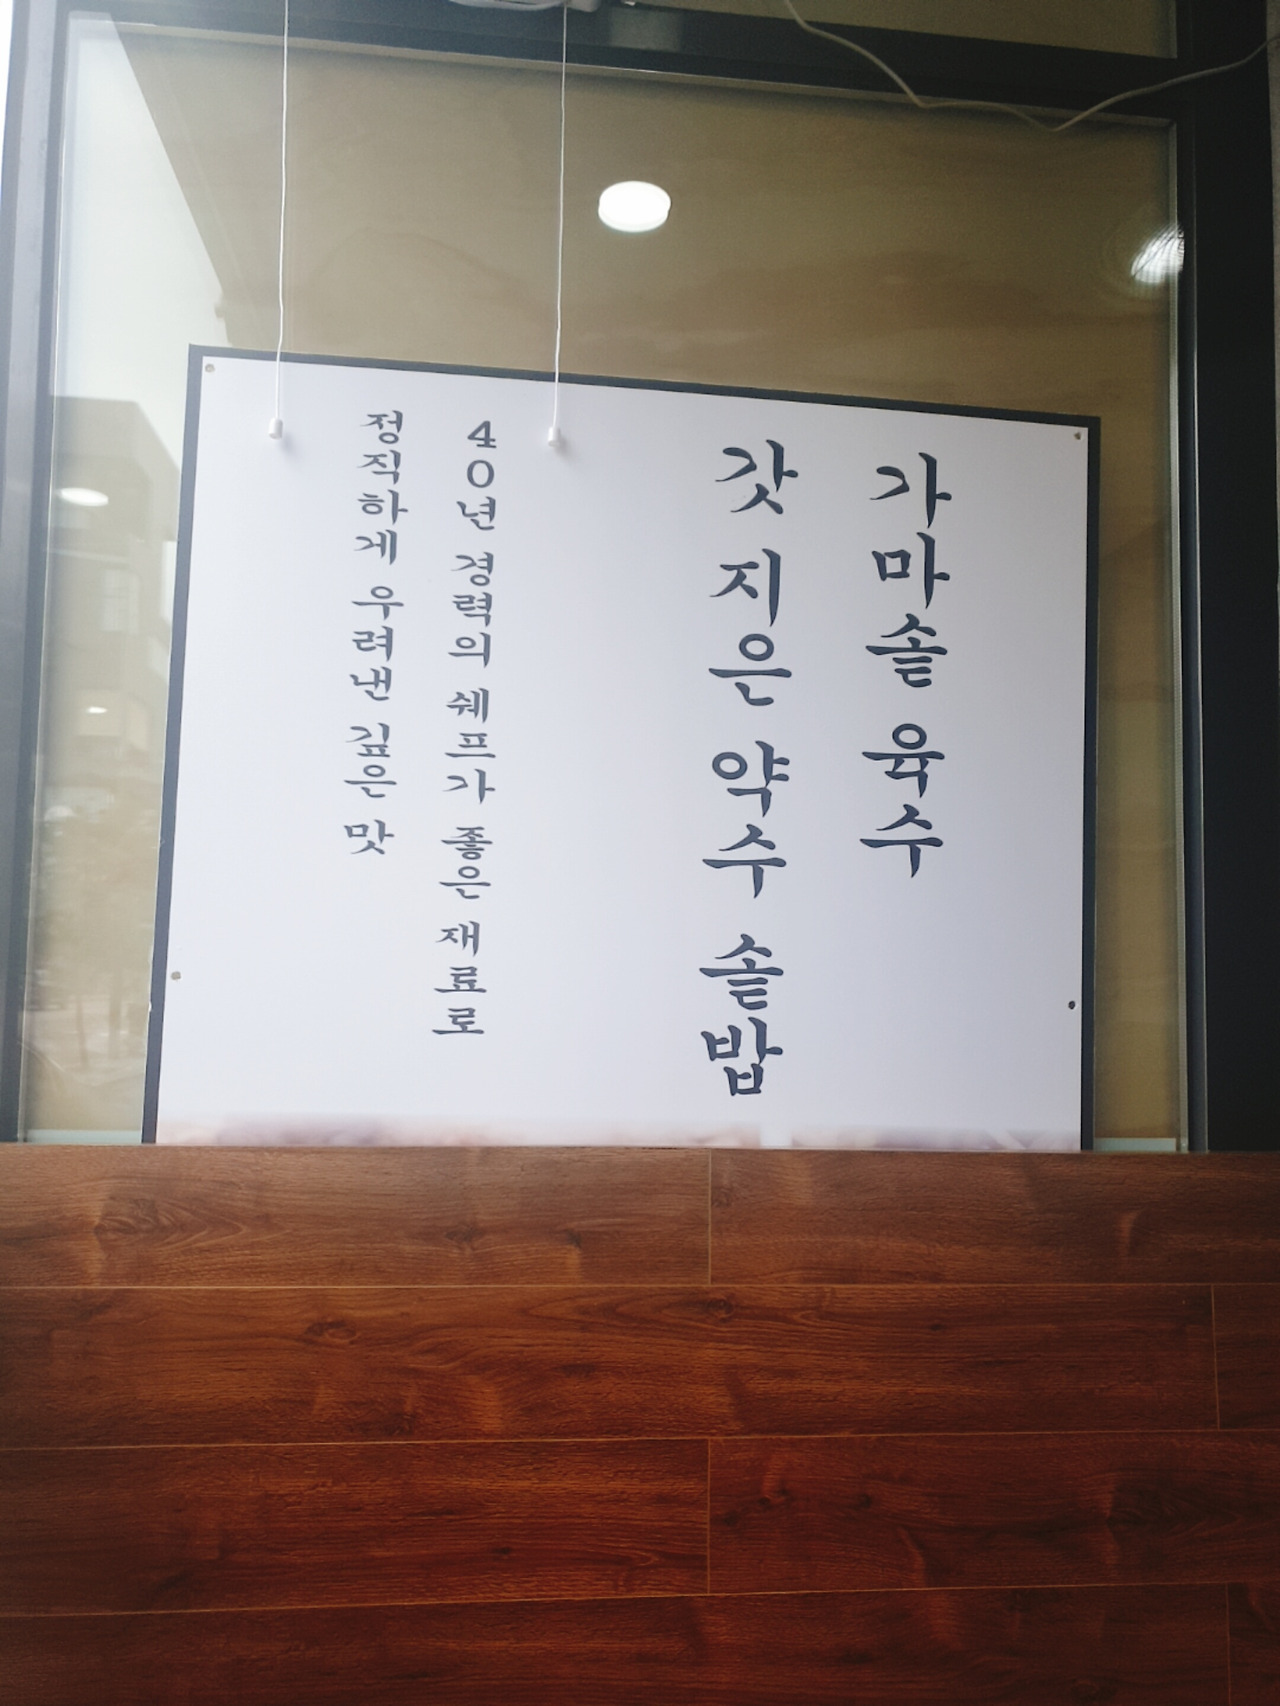 가마솥 육수
갓 지은 약수 솥밥
40년 경력의 쉐프가 좋은 재료로
정직하게 우려낸 깊은 맛